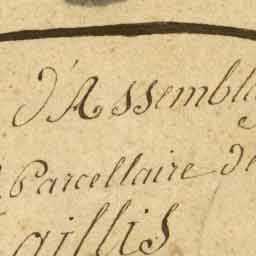 d'Assembla
Parcellaire de
aillis